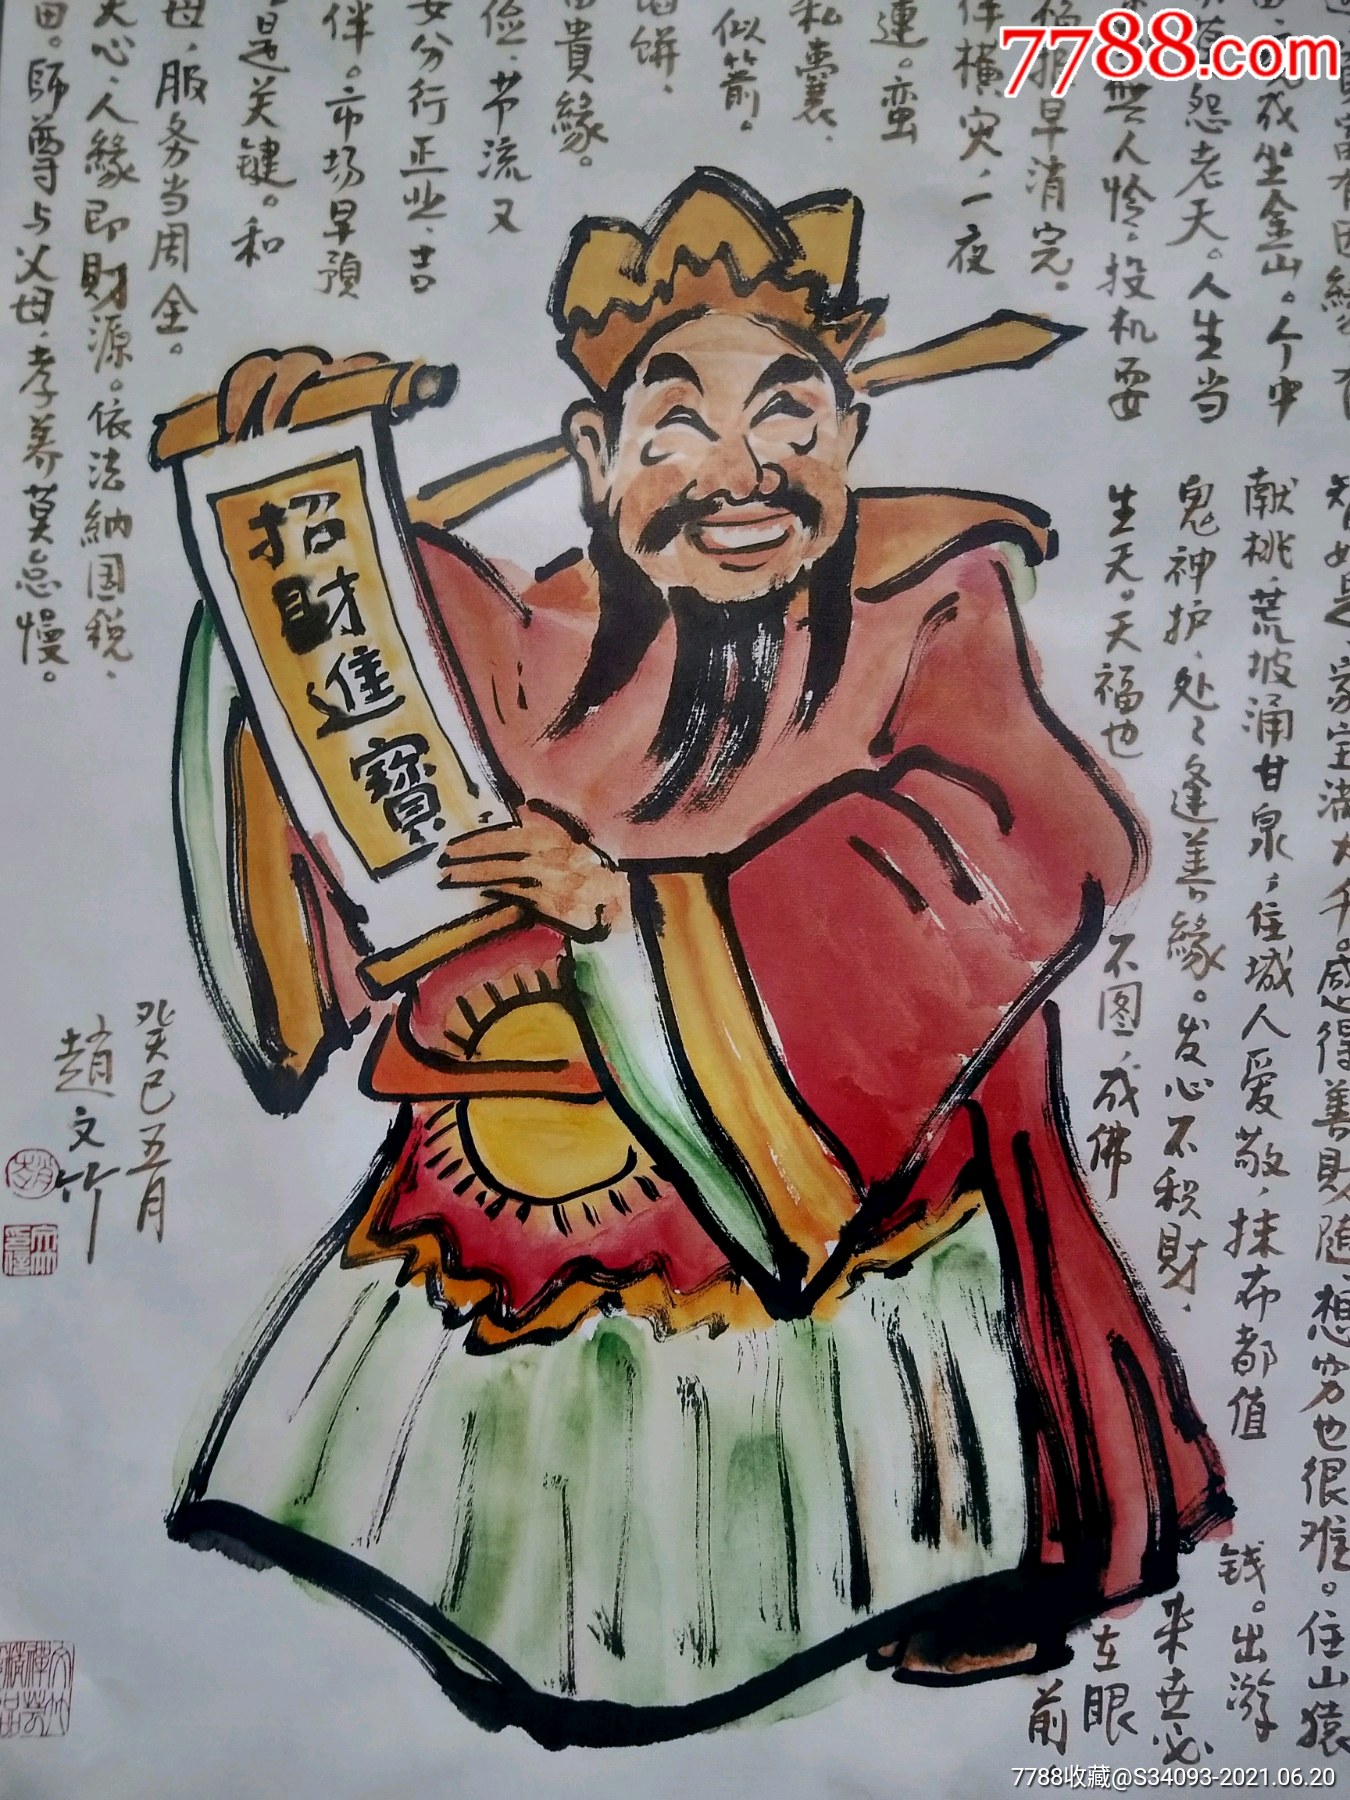 7788.com
招財進寶
智如是、家宝满大千。感得善財随、想穷也很难。住山猿
献桃、荒坡涌甘泉,住城人爱敬、抹布都值
钱。出游
鬼神护、处处逢善緣。发心不积財、
来世必
生天。天福也
不图、成佛
在眼
前
成坐金山。个中
怨老天。人生当
無人怜。投机耍
早消完。
横灾,一夜
連。蛮
私囊、
似箭。
餅、
貴緣。
俭、节流又
女分行正业、吉
伴。市场早預
是关键。和
母、服务当周全。
天心、人緣即財源。依法納国税、
田。師尊与父母、孝养莫怠慢。
癸巳五月
趙文竹
7788收藏@S34093-2021.06.20